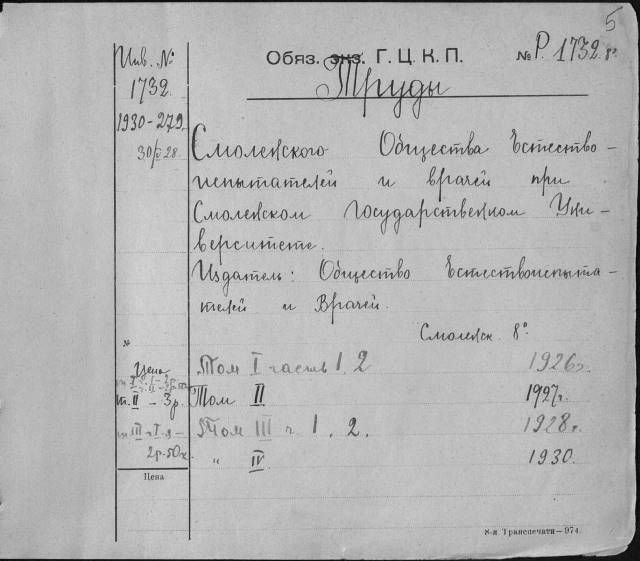 5
Инв. №
1732.
1930-279.
30/IV 28.
Обяз. экз. Г. Ц. К. П.
№ Р. 1732. 8°
Труды
Смоленского Общества Естество-
испытателей и врачей при
Смоленском Государственном Уни-
верситете.
Издатель: Общество Естествоиспыта-
телей и Врачей.
Смоленск. 8°.
№
Цена
т. II – 3 р.
2 р. 50 к.
Цена
Том I часть 1, 2 1926 г.
Том II 1927 г.
Том III ч. 1. 2. 1928 г.
„ IV 1930.
8-я Транспечати—974.